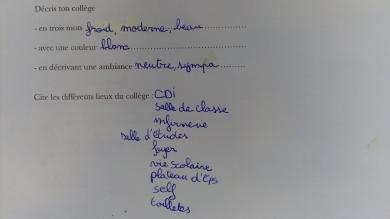 Décris ton collège
- en trois mots froid, moderne, beau
- avec une couleur blanc
- en décrivant une ambiance neutre, sympa
Cite les différents lieux du collège : CDi
salle de classe
infirmerie
salle d'études
foyer
vie scolaire
plateau d'EPS
self
toilettes